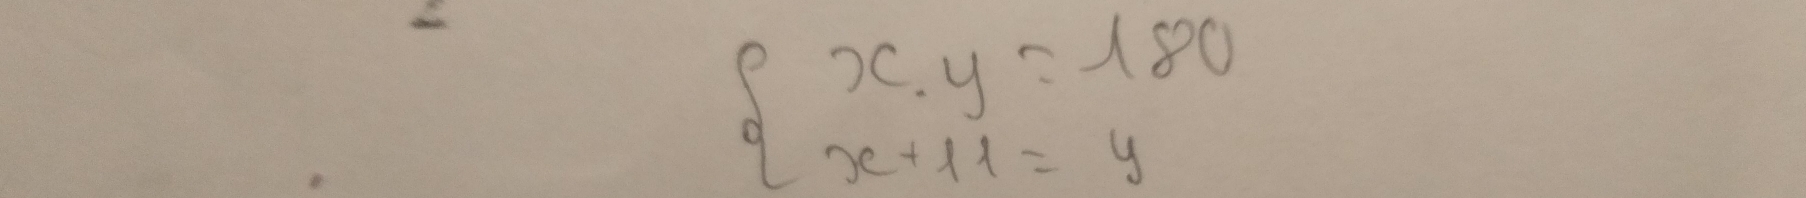 x.y=180
x+11=y